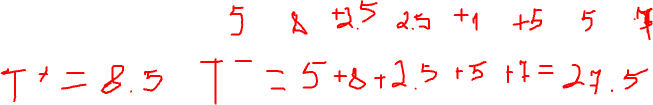 5 8 +2.5 2.5 +1 +5 5
T+ = 8.5 T- = 5+8+2.5+5+7=27.5